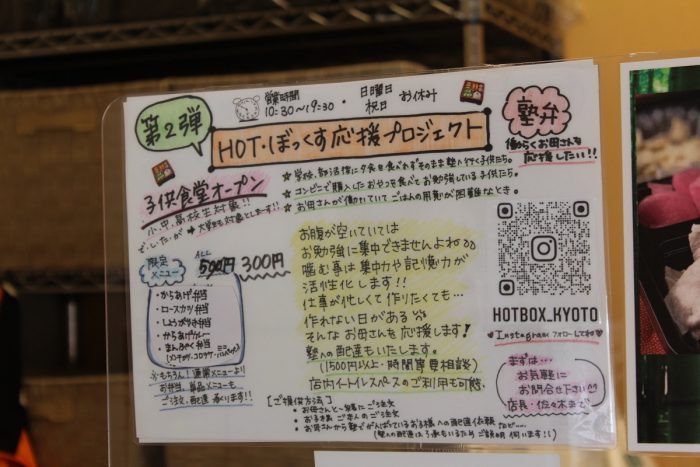 第2弾
営業時間
10:30〜19:30 ・ 日曜日 祝日 お休み
HOT・ぼっくす応援プロジェクト
塾弁
働らくお母さんを
応援したい!!
子供食堂オープン
小、中、高校生対象!!
でしたが → 大学生も対象とします!!
☆学校、部活後に夕食を食べれずそのまま塾へ行く子供たち。
☆コンビニで購入したおやつを食べてお勉強している子供たち。
☆お母さんが働いていてごはんの用意が困難なとき。
限定
メニュー
ALL
500円 300円
・からあげ弁当
・ロースカツ弁当
・しょうが焼き弁当
・からあげカレー
・まんぷく弁当
(メンチカツ・コロッケ・
※もちろん!通常メニューより
お弁当、単品メニューも
ご注文、配達 承ります!!
お腹が空いていては
お勉強に集中できませんよね
噛む事は集中力や記憶力が
活性化します!!
仕事が忙しくて作りたくても…
作れない日がある
そんなお母さんを応援します!
塾への配達もいたします。
(1500円以上・時間等要相談)
店内イートインスペースのご利用も可能
HOTBOX_KYOTO
Instagram フォローしてネ
まずは…
お気軽に
お問合せ下さい
店長・佐々木まで
【ご提供方法】
・お母さんと一緒にご注文
・お子さま ご本人のご注文
・お母さんから塾でがんばっているお子様への配達依頼 など…
(塾への配達は 事もあるため ご説明 伺います!!)